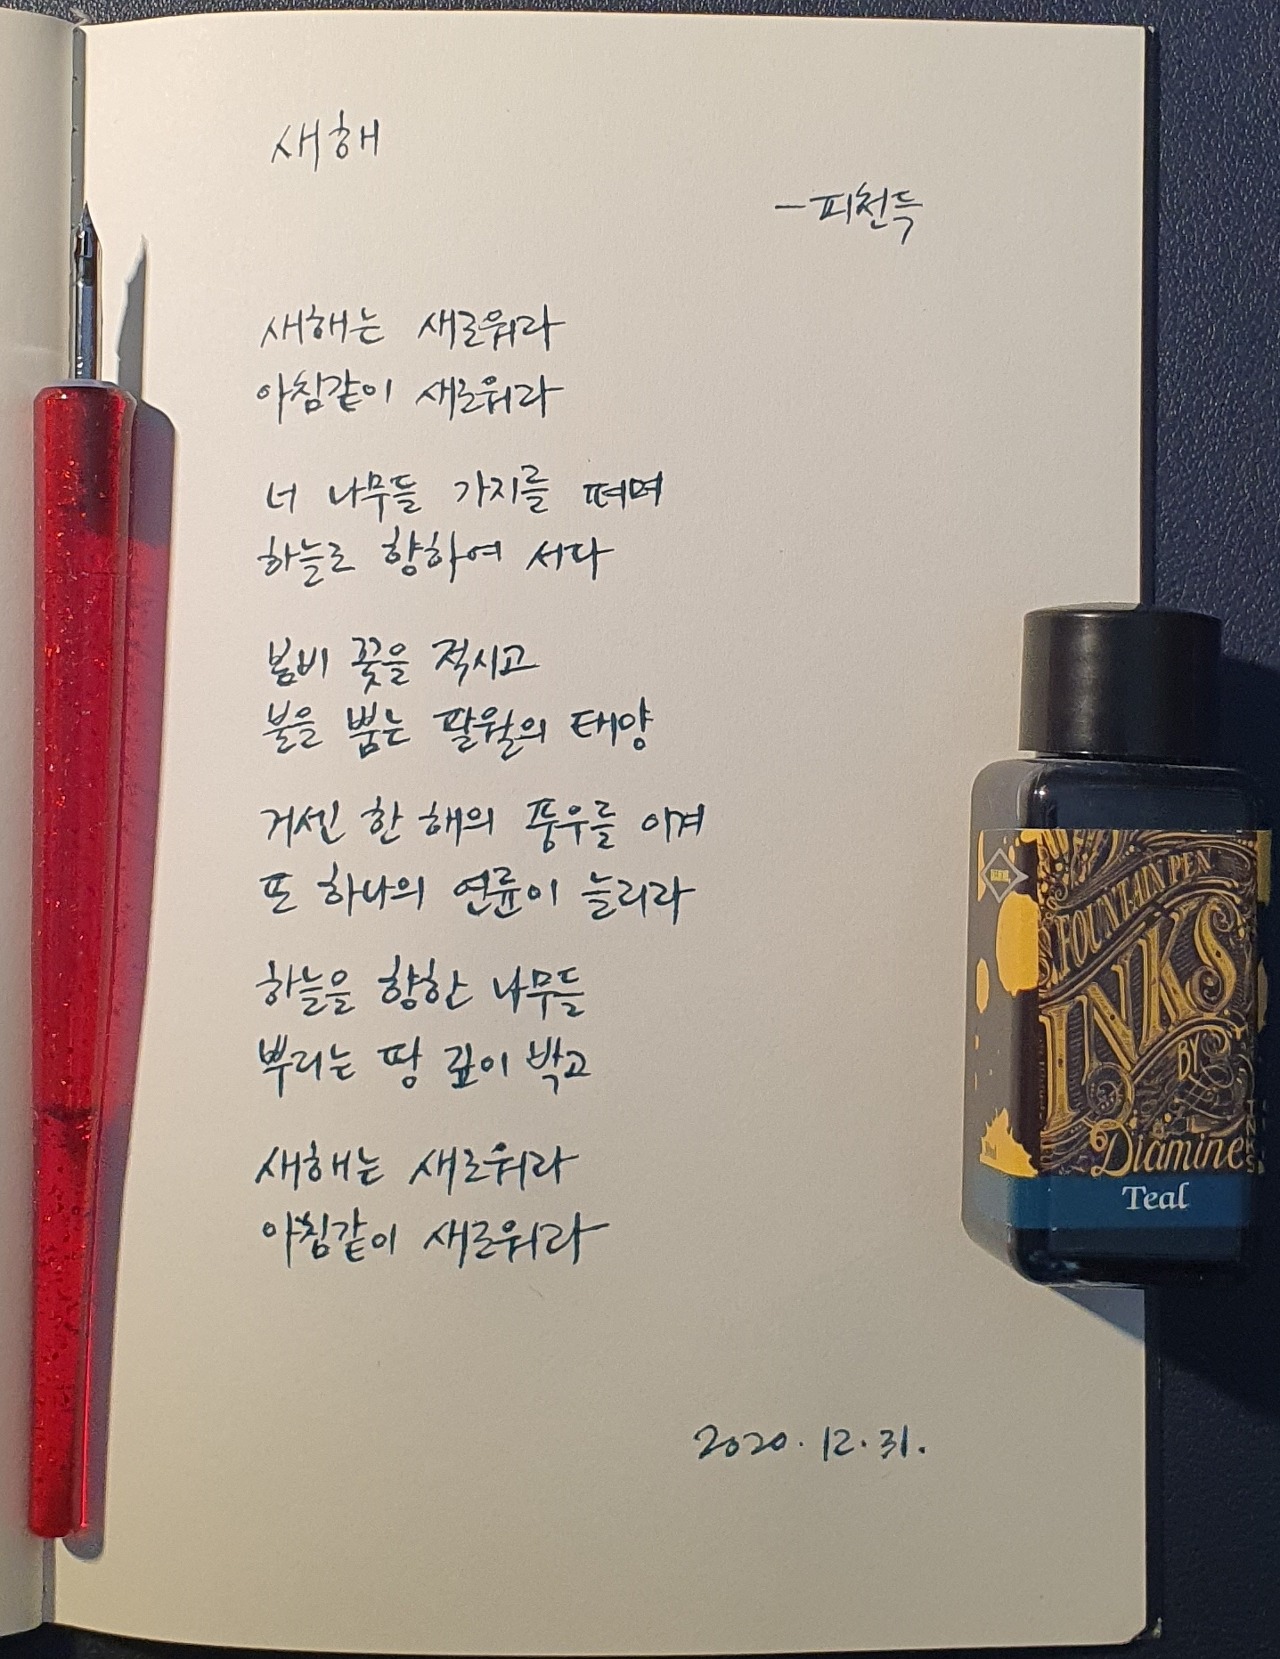 새해
- 피천득
새해는 새로워라
아침같이 새로워라
너 나무들 가지를 펴며
하늘로 향하여 서다
봄비 꽃을 적시고
불을 뿜는 팔월의 태양
거센 한 해의 풍우를 이겨
또 하나의 연륜이 늘리라
하늘을 향한 나무들
뿌리는 땅 깊이 박고
새해는 새로워라
아침같이 새로워라
2020. 12. 31.
FOUNTAIN PEN
INKS
BY
Diamine
Teal